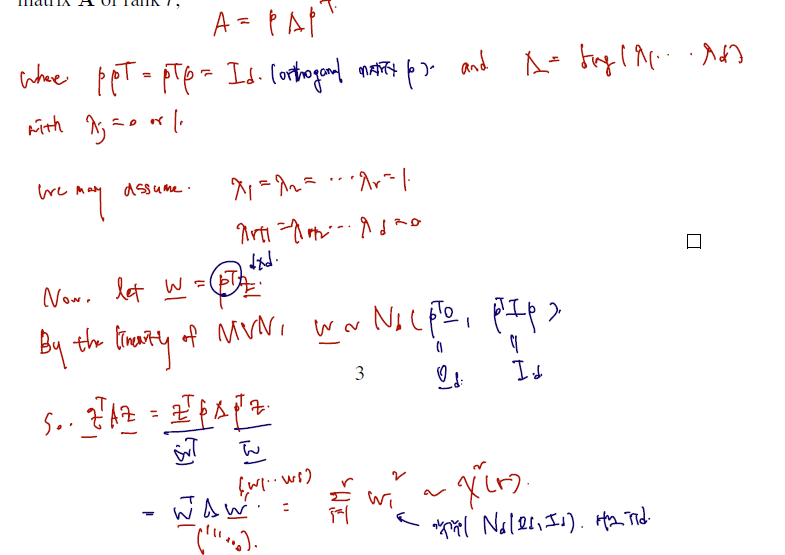 matrix A of rank r,
A = P Λ P^T.
where PP^T = P^TP = I_d. (orthogonal matrix P). and Λ = diag(λ_1 ··· λ_d)
with λ_j = 0 or 1.
We may assume. λ_1 = λ_2 = ··· λ_r = 1.
λ_{r+1} = λ_{r+2} ··· λ_d = 0
□
d×d.
Now. let W = P^T Z.
By the linearity of MVN, W ~ N_d ( P^T 0, P^T I P ).
" "
3
0_d. I_d
So.. Z^T A Z = Z^T P Λ P^T Z.
W^T W
(W_1 ·· W_d)
= W^T Λ W = Σ_{i=1}^r W_i^2 ~ χ^2(r).
N_d(0_d, I_d).